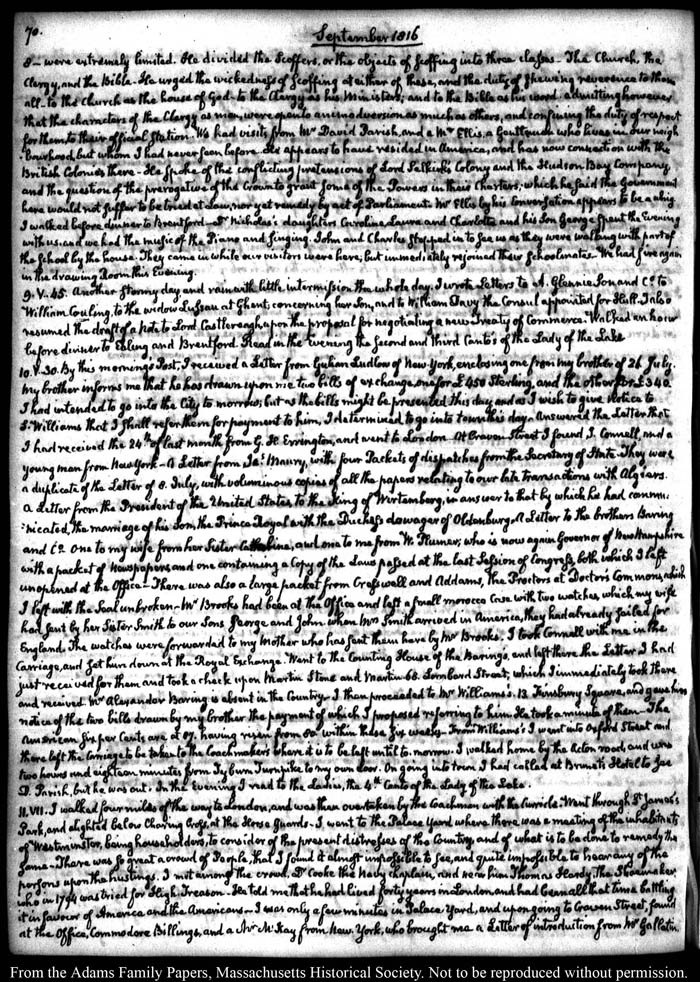 70.
September 1816
8— were extremely limited. He divided the Scoffers, or the objects of Scoffing into three classes. The Church, the
Clergy, and the Bible. He urged the wickedness of Scoffing at either of these, and the duty of shewing reverence to them
all. to the Church as the house of God— to the Clergy as his Ministers; and to the Bible as his word. admitting however
that the characters of the Clergy as men, were open to animadversion as much as others, and confining the duty of respect
for them to their official Station. We had visits from Mr David Parish, and a Mr Ellis, a Gentleman who lives in our neigh
bourhood, but whom I had never seen before. He appears to have resided in America, and has now connection with the
British Colonies there— He spoke of the conflicting pretensions of Lord Selkirk's Colony and the Hudson Bay Company,
and the question of the prerogative of the Crown to grant some of the Powers in their Charters; which he said the Government
here would not suffer to be tried at Law, nor yet remedy by act of Parliament. Mr Ellis by his Conversation appears to be a whig
I walked before dinner to Brentford— Dr Nicholas's daughters Caroline, Laura and Charlotte and his Son George spent the Evening
with us. and we had the music of the Piano and singing. John and Charles stopped in to see us as they were walking with part of
the School by the house. They came in while our visitors were here, but immediately rejoined their Schoolmates— We had fire again
in the drawing Room this Evening.
9. V. 45. Another stormy day, and rain with little intermission the whole day. I wrote Letters to A. Glennie, Son, and Co. to
William Couling, to the widow Lussau at Ghent; concerning her Son, and to William Davy the Consul appointed for Hull. I also
resumed the draft of a Note to Lord Castlereagh, upon the proposal for negotiating a new Treaty of Commerce. Walked an hour
before dinner to Ealing and Brentford. Read in the evening the second and third Cantos of the Lady of the Lake
10. V. 30. By this morning's Post, I received a Letter from Gulian Ludlow of New York, enclosing one from my brother of 26 July.
My brother informs me that he has drawn upon me two bills of exchange, one for £450 Sterling, and the other for £340.
I had intended to go into the City to morrow; but as the bills might be presented this day, and as I wish to give notice to
S. Williams that I shall refer them for payment to him, I determined to go into town this day. Answered the Letter that
I had received the 24th of last month from G. H. Errington, and went to London. At Craven Street I found J. Connell, and a
young man from New York— A Letter from Jas. Maury, with four Packets of dispatches from the Secretary of State— They were
a duplicate of the Letter of 8. July, with voluminous copies of all the papers relating to our late transactions with Algiers.
A Letter from the President of the United States, to the King of Wirtemberg, in answer to that by which he had commu
nicated, the marriage of his Son, the Prince Royal with the Duchess dowager of Oldenburg. A Letter to the brothers Baring
and Co. One to my wife from her Sister Catherine, and one to me from W. Plumer, who is now again Governor of New Hampshire
with a packet of Newspapers, and one containing a Copy of the Laws passed at the last Session of Congress, both which I left
unopened at the Office— There was also a large packet from Cresswell and Addams, the Proctors at Doctors Commons, which
I left with the Seal unbroken— Mr Brooks had been at the Office and left a small morocco Case with two watches, which my wife
had sent by her Sister Smith to our Sons George and John. when Mrs Smith arrived in America, they had already sailed for
England. The watches were forwarded to my Mother who has sent them here by Mr Brooks. I took Connell with me in the
Carriage, and set him down at the Royal Exchange. Went to the Counting House of the Barings, and left there the Letter I had
just received for them and took a check upon Martin Stone and Martin 68. Lombard Street; which I immediately took there
and received. Mr Alexander Baring is absent in the Country. I then proceeded to Mr Williams's. 13. Finsbury Square, and gave him
notice of the two bills drawn by my brother the payment of which I proposed referring to him. He took a minute of them— The
American Six per Cents are at 87. having risen from 80 within these six weeks— From Williams's I went into Oxford Street and
there left the Carriage to be taken to the Coachmakers where it is to be left until to-morrow. I walked home by the Acton road, and was
two hours and eighteen minutes from Tyburn Turnpike to my own door. On going into town I had called at Brunet's Hotel to see
D. Parish, but he was out. In the Evening I read to the Ladies, the 4th Canto of the Lady of the Lake.
11. VII. I walked four miles of the way to London, and was then overtaken by the Coachman with the Curricle. Went through St. James's
Park, and alighted below Charing Cross, at the Horse Guards— I went to the Palace Yard where there was a meeting of the inhabitants
of Westminster, being householders, to consider of the present distresses of the Country, and of what is to be done to remedy the
same— There was so great a crowd of People, that I found it almost impossible to see, and quite impossible to hear any of the
persons upon the hustings. I met among the crowd, Dr Cooke the Navy Chaplain, and near him Thomas Hardy, the Shoemaker,
who in 1794 was tried for High Treason— He told me that he had lived forty years in London, and had been all that time battling
it in favour of America and the Americans— I was only a few minutes in Palace Yard, and upon going to Craven Street, found
at the Office, Commodore Billings, and a Mr McKay from New York, who brought me a Letter of introduction from Mr Gallatin.
From the Adams Family Papers, Massachusetts Historical Society. Not to be reproduced without permission.